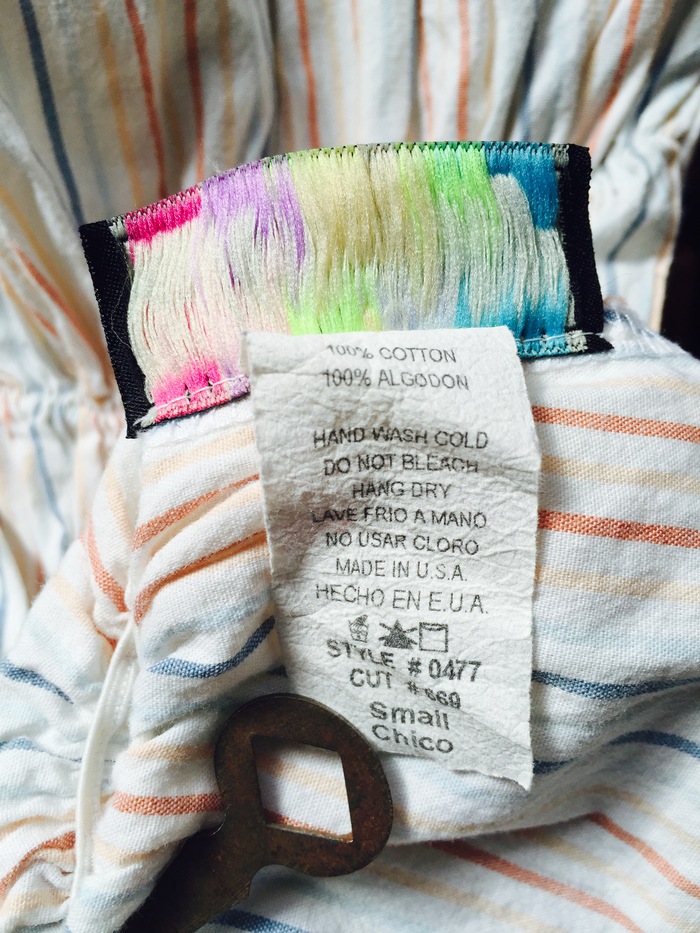 100% COTTON
100% ALGODON
HAND WASH COLD
DO NOT BLEACH
HANG DRY
LAVE FRIO A MANO
NO USAR CLORO
MADE IN U.S.A.
HECHO EN E.U.A.
STYLE # 0477
CUT # 669
Small
Chico